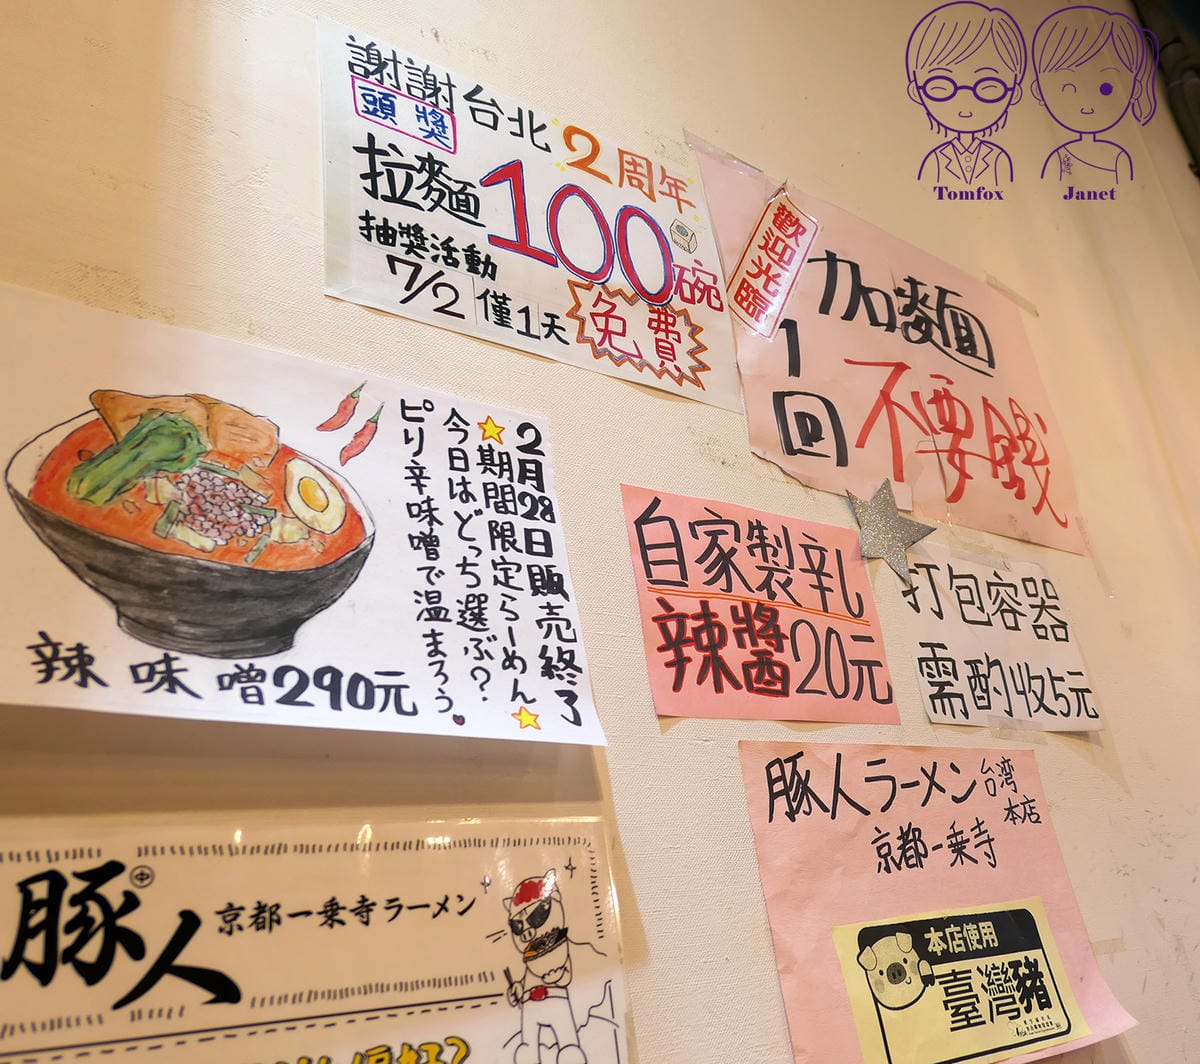 謝謝台北2周年
頭獎
拉麵100碗
抽獎活動
7/2 僅1天 免費
歡迎光臨
加麵
1回 不要錢
2月28日販売終了
期間限定らーめん
今日はどっち選ぶ?
ピリ辛味噌で温まろう
辣味噌290元
自家製辛し
辣醬20元
打包容器
需酌收5元
豚人ラーメン台湾
本店
京都一乗寺
本店使用
臺灣豬
豚人
京都一乗寺ラーメン
Tomfox
Janet